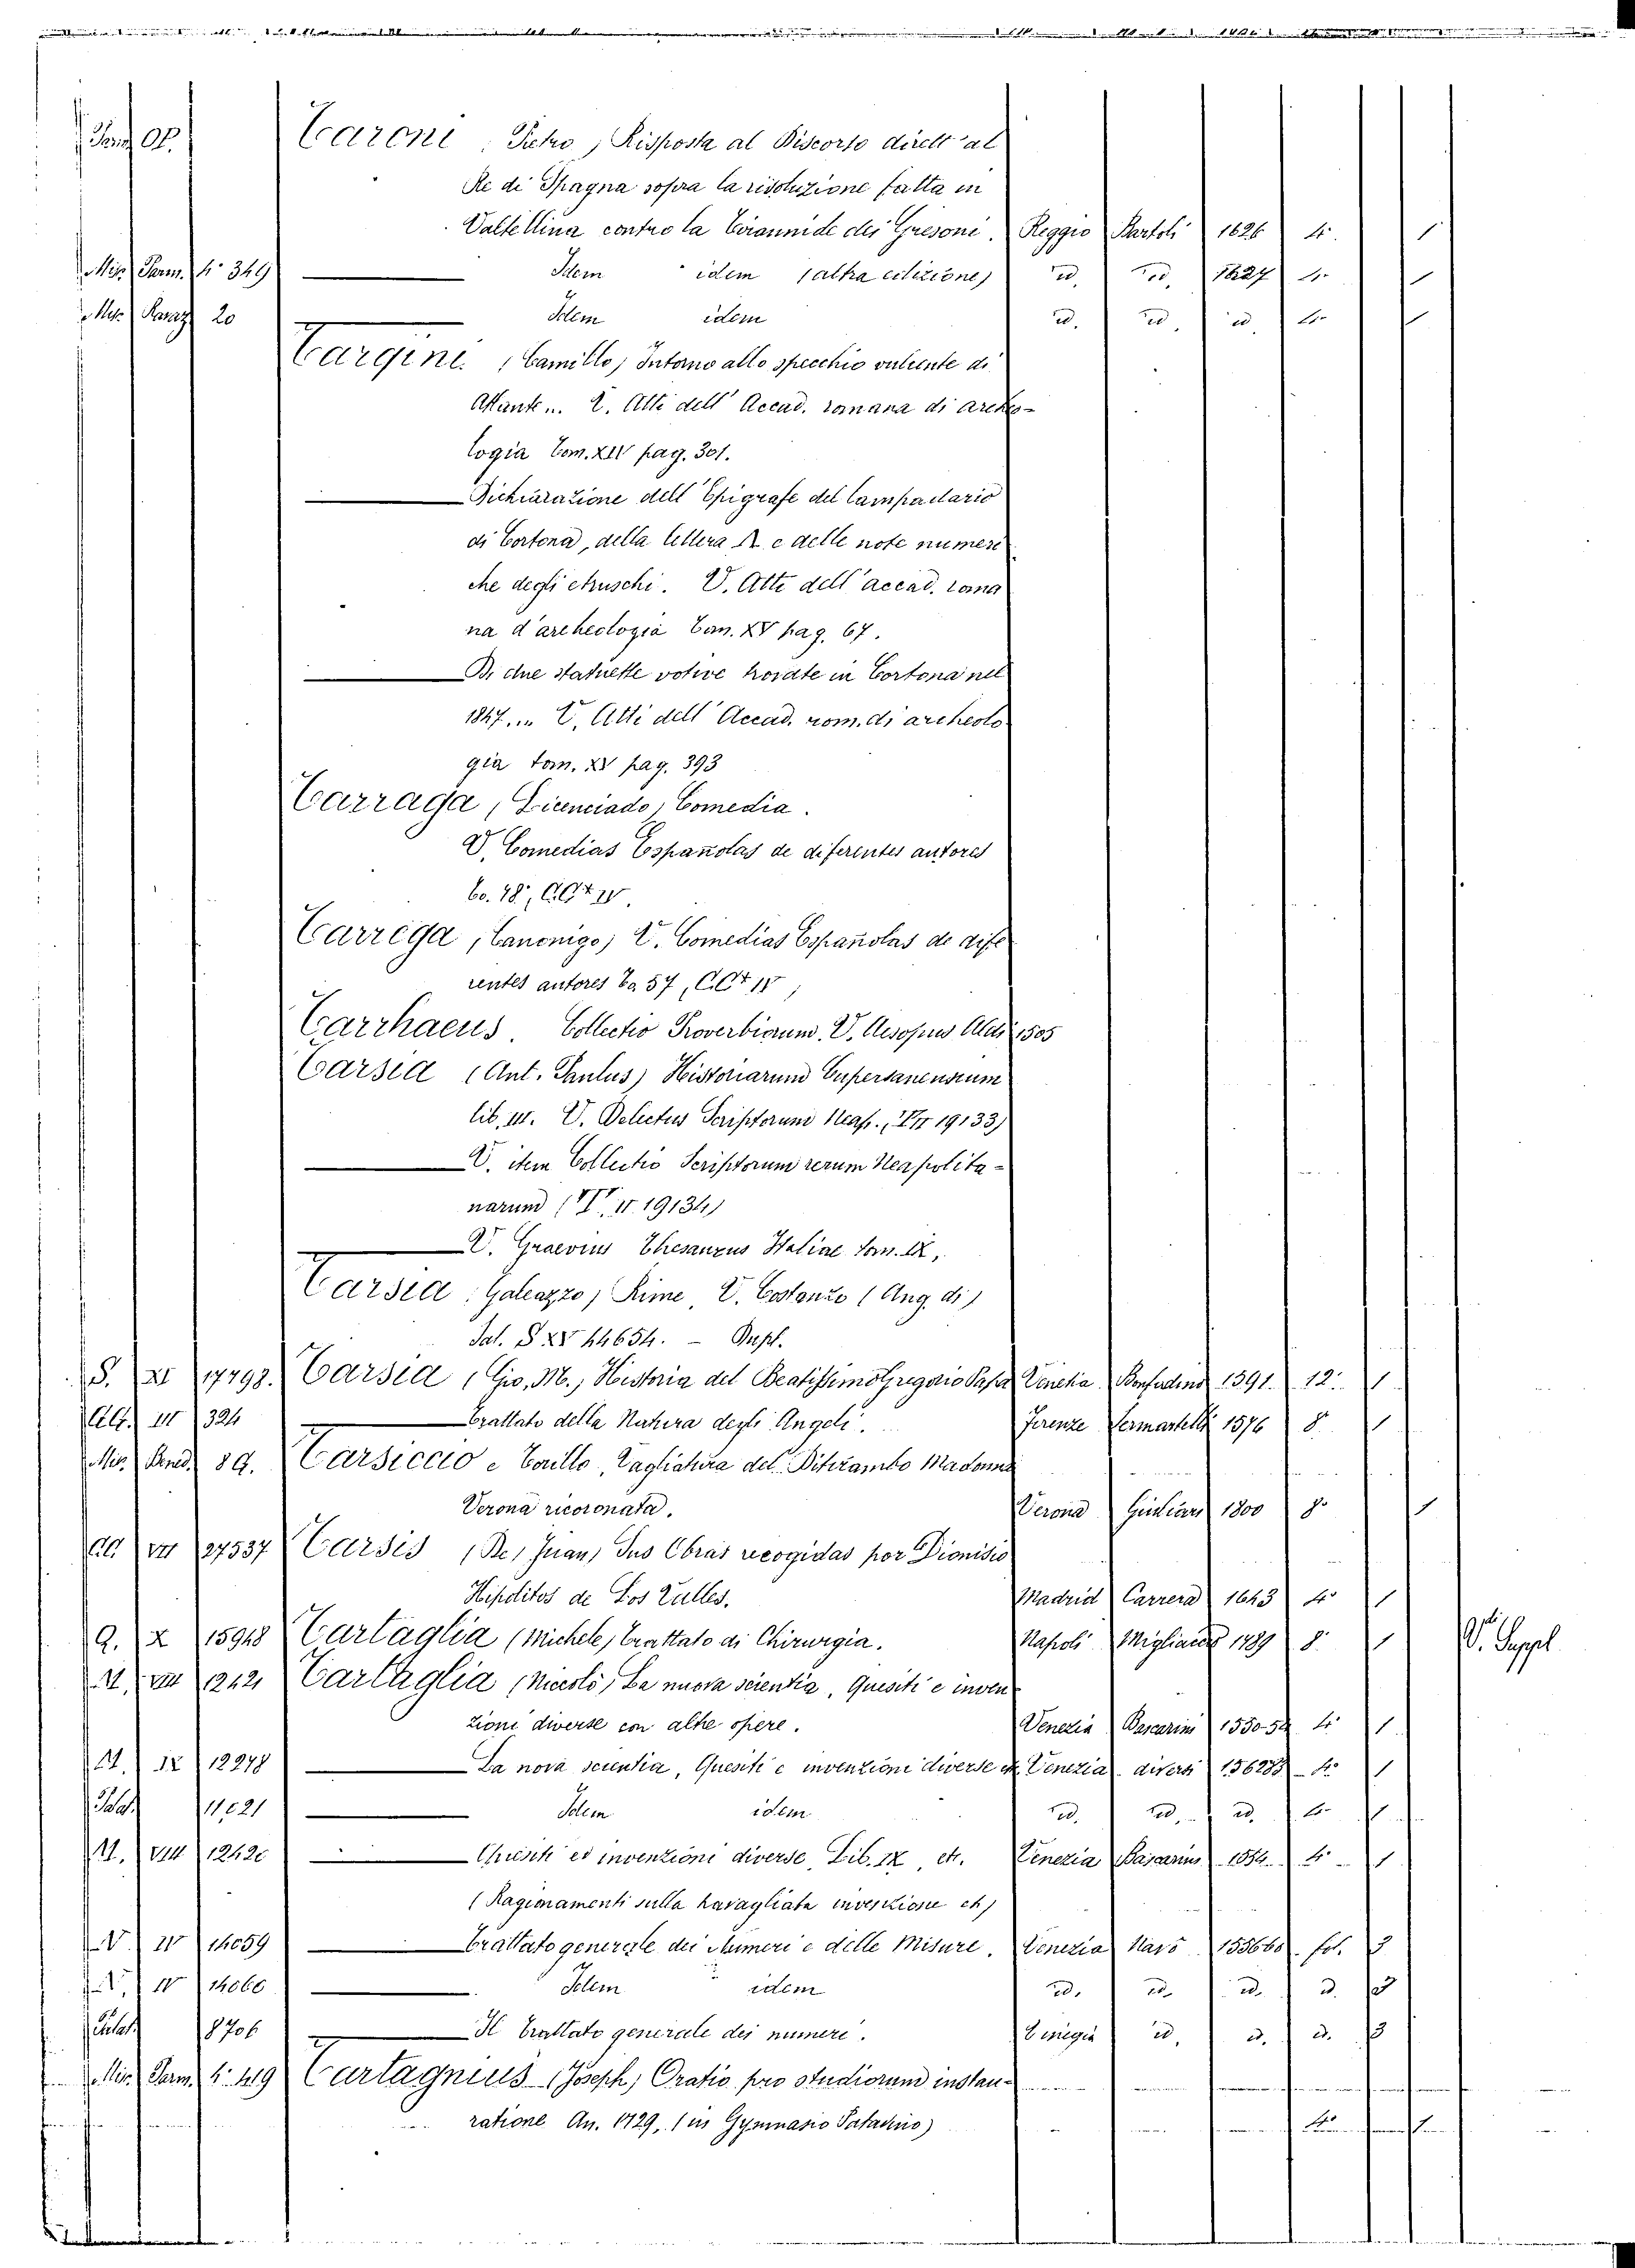 Taroni (Pietro) Risposta al Discorso dirett'al
Re di Spagna sopra la risoluzione fatta in
Valtellina contro la tirannide dei Gresoni. Reggio Bartoli 1626 4. 1
Mis. Parm. 4° 349 Idem idem (altra edizione) id. id. 1627 4. 1
Mis. 20 Idem idem id. id. id. 4. 1
Targini (Camillo) Intorno allo specchio di
Atlante... V. Atti dell'Accad. romana di archeo-
logia Tom. XIV pag. 301.
Dichiarazione dell'Epigrafe del Lampadario
di Cortona, della lettera e delle note numeri
che degli etruschi. V. Atti dell'accad. roma
na d'archeologia Tom. XV pag. 67.
Di due statuette votive trovate in Cortona nel
1847... V. Atti dell'Accad. rom. di archeolo
gia tom. XV pag. 393
Tarraga (Licenciado) Comedia.
V. Comedias Españolas de diferentes autores
To. 48,
Tarrega (Canonigo) V. Comedias Españolas de dife
rentes autores To. 57,
Tarrhaeus. Collectio Proverbiorum. V. Aesopus Aldi 1505
Tarsia (Ant. Paulus) Historiarum Cupersanensium
lib. III. V. Delectus Scriptorum Neap. 19133)
V. item Collectio Scriptorum rerum Neapolita-
narum 19134)
V. Graevius Thesaurus Italiae tom. IX,
Tarsia (Galeazzo) Rime, V. Costanzo (Ang. di)
Pal. S XV 44654. - Dupl.
S. XI 17798. Tarsia (Gio. M.) Historia del Beatissimo Gregorio Papa Venetia Bonfadino 1591. 12. 1
324 Trattato della Natura degli Angeli. Firenze Sermartelli 1576 8. 1
Mis. Bened. 89. Tarsiccio e Torillo, Tagliatura del Ditirambo Madonna
Verona ricoronata. Verona Giuliari 1800 8. 1
VII 27537 Tarsis (De, Juan) Sus Obras recogidas por Dionisio
Hipolitos de Los Valles. Madrid Carrera 1643 4. 1
Q. X 15948 Tartaglia (Michele) Trattato di Chirurgia. Napoli Migliacci 1789 8. 1 V. Suppl
VIII 12421 Tartaglia (Niccolò) La nuova scientia, Quesiti e inven
zioni diverse con altre opere. Venezia Bascarini 1550-54 4. 1
IX 12278 La nova scientia, Quesiti e invenzioni diverse etc. Venezia diversi 4. 1
Palat. 11621 Idem idem id. id. id. 4. 1
VIII 12420 Quesiti ed invenzioni diverse, Lib. IX, etc. Venezia Bascarini 1554. 4. 1
(Ragionamenti sulla travagliata invenzione etc)
V. IV 14059 Trattato generale dei Numeri e delle Misure. Venezia Navò 155660. fol. 3
V. IV 14060 Idem idem id. id. id. id. 3
Palat. 8706 Il Trattato generale dei numeri. Venegia id. id. id. 3
Mis. Parm. 4° 419 Tartagnius (Joseph) Oratio pro studiorum instau-
ratione An. 1729, (in Gymnasio Patavino) 4° 1